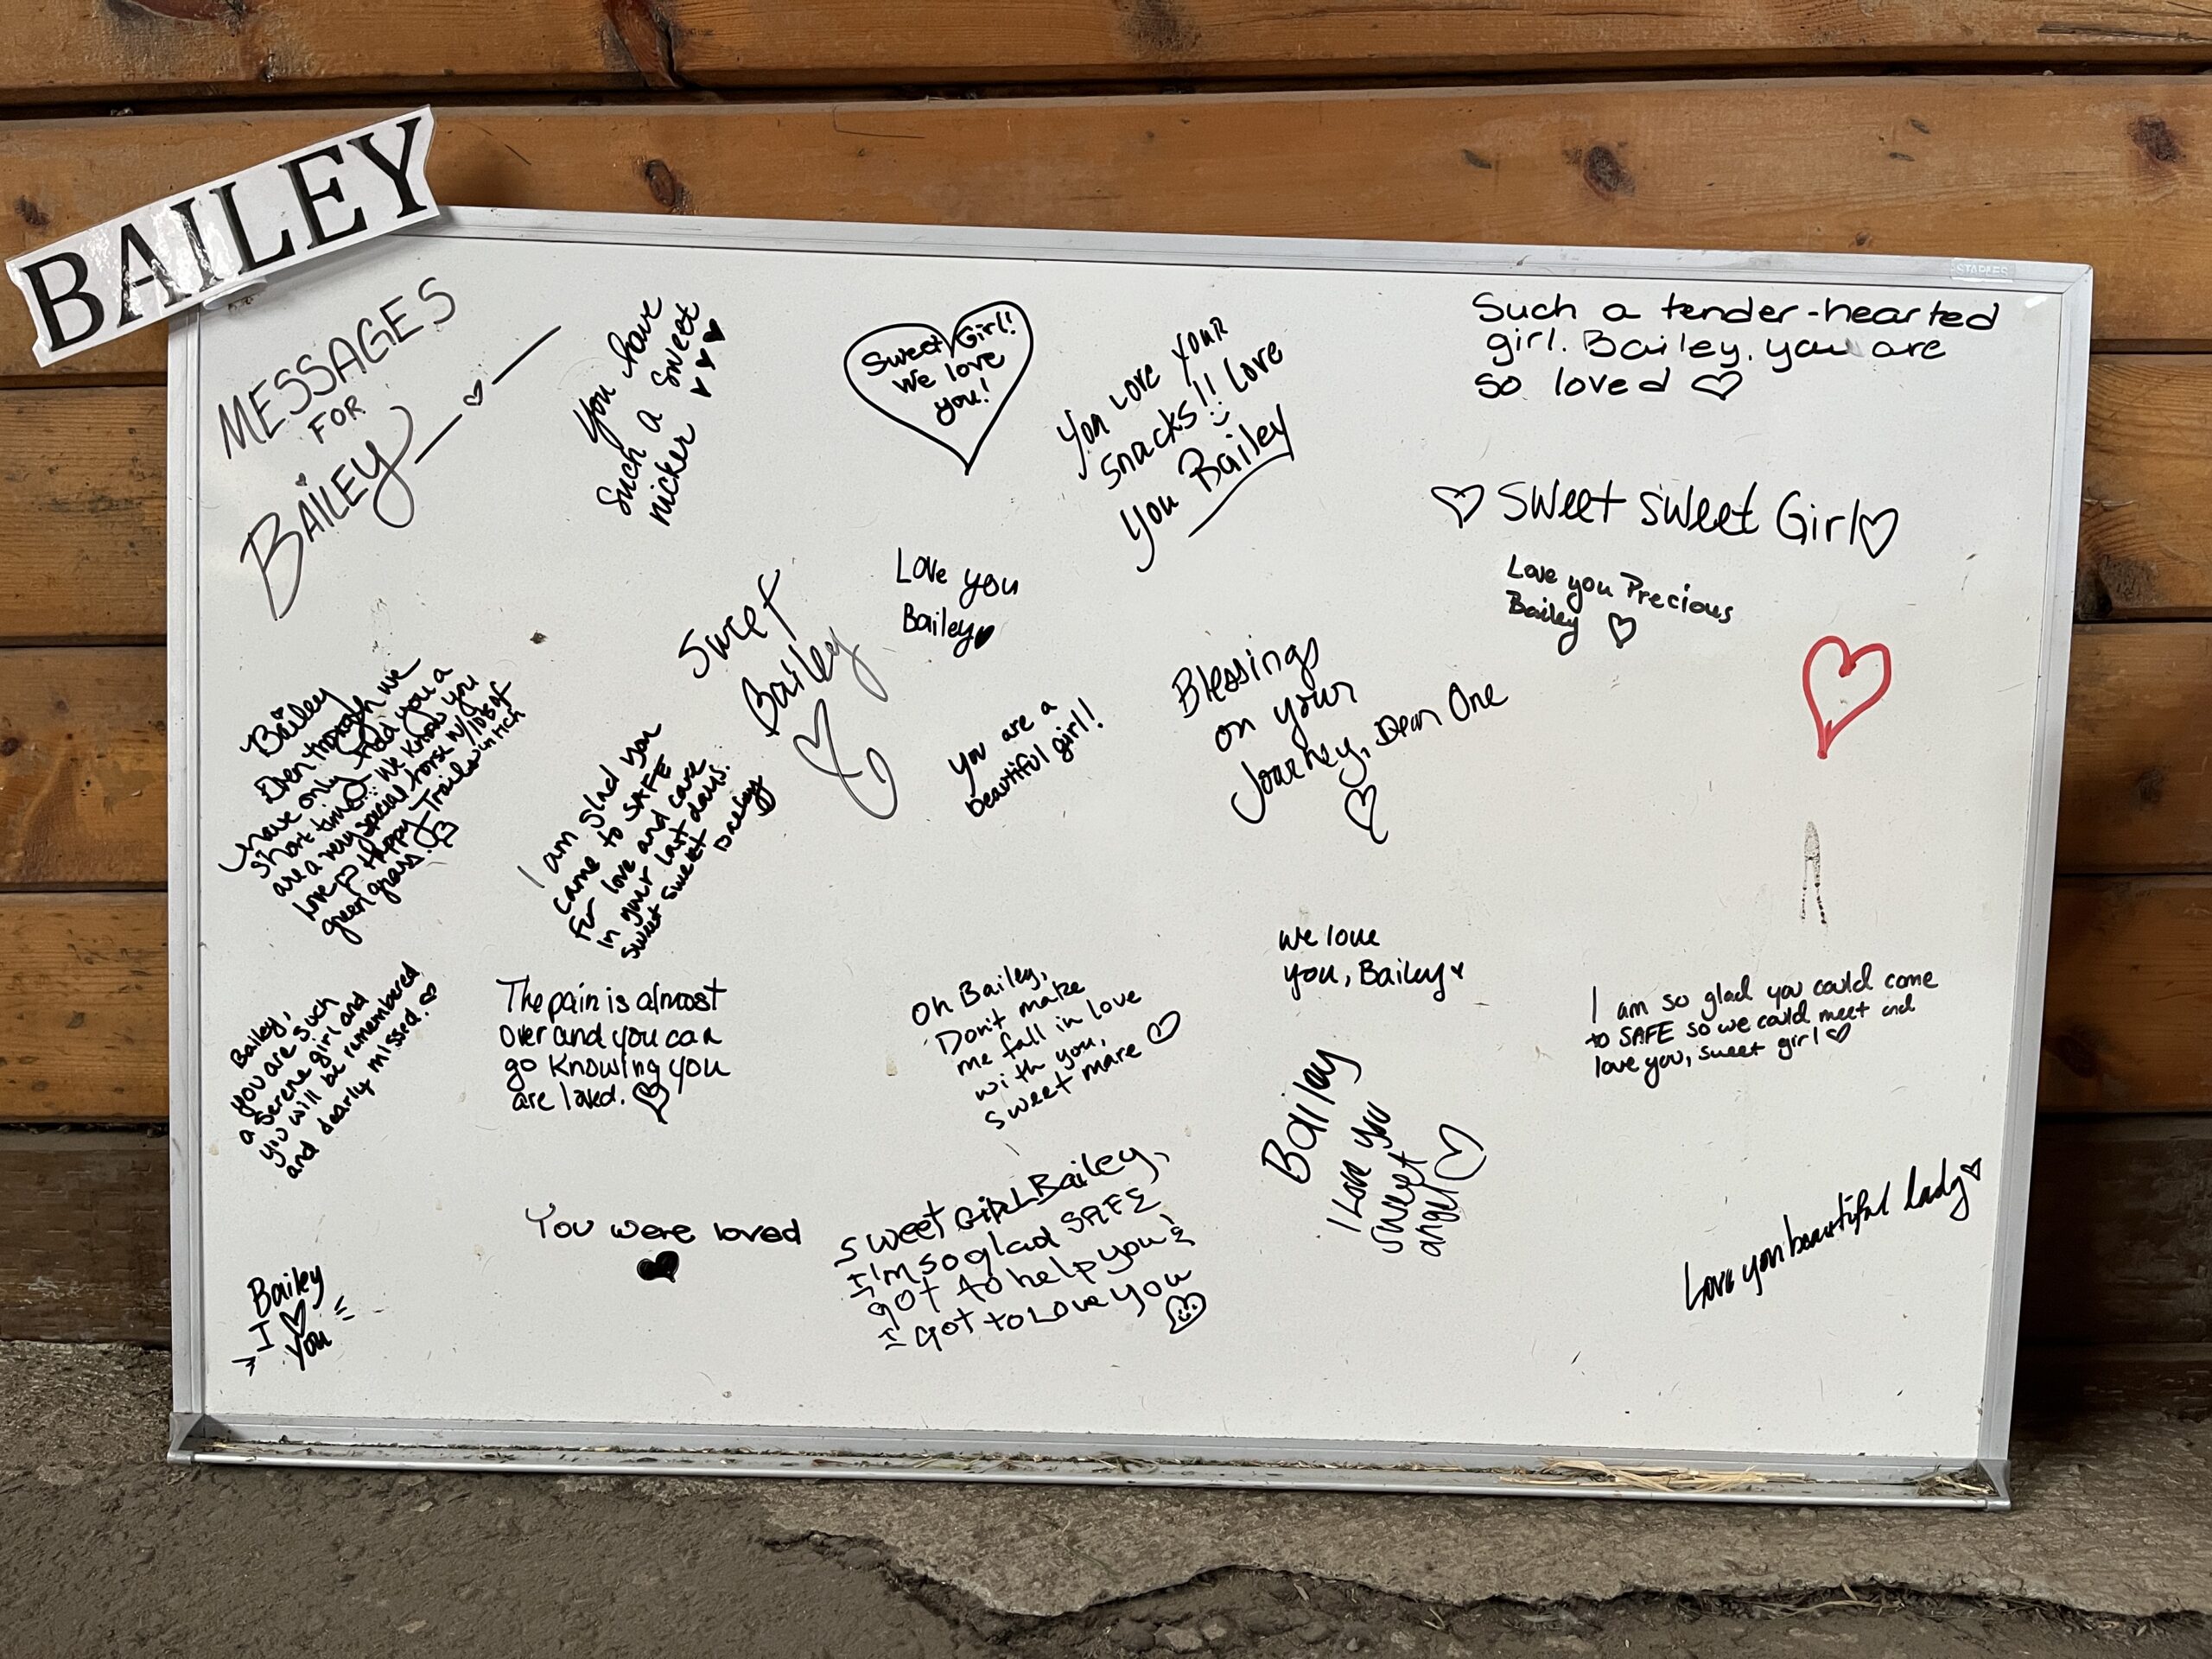 BAILEY
STAPLES
MESSAGES
FOR
BAILEY
You have
such a sweet
nicker
Sweet Girl!
We love
you!
You Love Your
snacks!! Love
you Bailey
Such a tender-hearted
girl. Bailey, you are
so loved
Sweet sweet Girl
Love you Precious
Bailey
Love you
Bailey
Sweet
Bailey
Blessings
on your
Journey, Dear One
you are a
beautiful girl!
Bailey
Even though we
have only had you a
short time... We know you
are a very special horse w/ lots of
love Happy Trails in rich
green grass.
I am glad you
came to SAFE
for love and care
in your last days.
sweet sweet Bailey
we love
you, Bailey
Bailey,
you are such
a serene girl and
you will be remembered
and dearly missed.
The pain is almost
over and you can
go knowing you
are loved.
Oh Bailey,
Don't make
me fall in love
with you,
sweet mare
I am so glad you could come
to SAFE so we could meet and
love you, sweet girl
Bailey
I Love you
sweet
angel
You were loved
sweet GIRL Bailey,
I'm so glad SAFE
got to help you &
I got to Love you
Love you beautiful lady
Bailey
I
you